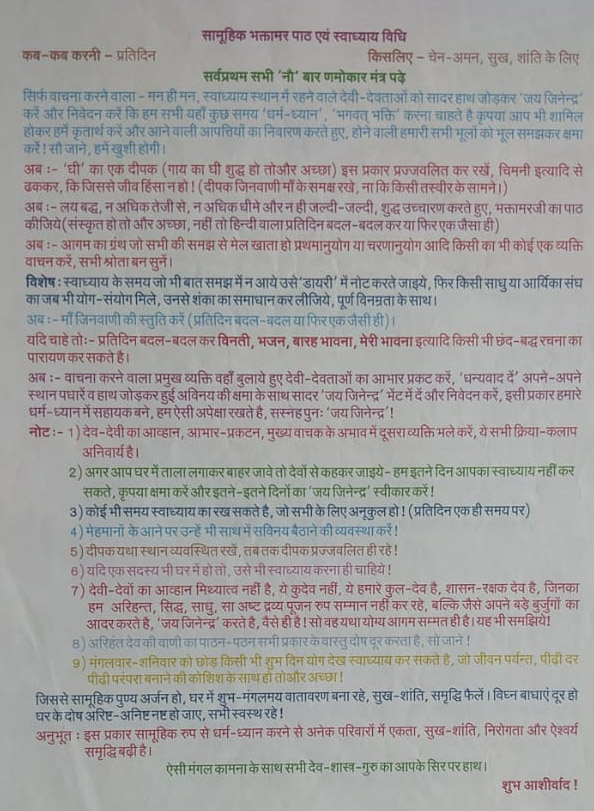 सामूहिक भक्तामर पाठ एवं स्वाध्याय विधि
कब-कब करनी - प्रतिदिन किसलिए - चेन-अमन, सुख, शांति के लिए
सर्वप्रथम सभी 'नौ' बार णमोकार मंत्र पढ़े
सिर्फ वाचना करने वाला - मन ही मन, स्वाध्याय स्थान में रहने वाले देवी-देवताओं को सादर हाथ जोड़कर 'जय जिनेन्द्र'
करें और निवेदन करें कि हम सभी यहाँ कुछ समय 'धर्म-ध्यान', 'भगवत् भक्ति' करना चाहते है कृपया आप भी शामिल
होकर हमें कृतार्थ करें और आने वाली आपत्तियों का निवारण करते हुए, होने वाली हमारी सभी भूलों को भूल समझकर क्षमा
करें ! सौ जाने, हमें खुशी होगी।
अब :- 'घी' का एक दीपक (गाय का घी शुद्ध हो तोऔर अच्छा) इस प्रकार प्रज्जवलित कर रखें, चिमनी इत्यादि से
ढककर, कि जिससे जीव हिंसा न हो ! (दीपक जिनवाणी माँ के समक्ष रखे, ना कि किसी तस्वीर के सामने।)
अब :- लय बद्ध, न अधिक तेजी से, न अधिक धीमे और न ही जल्दी-जल्दी, शुद्ध उच्चारण करते हुए, भक्तामरजी का पाठ
कीजिये (संस्कृत हो तो और अच्छा, नहीं तो हिन्दी वाला प्रतिदिन बदल-बदल कर या फिर एक जैसा ही)
अब :- आगम का ग्रंथ जो सभी की समझ से मेल खाता हो प्रथमानुयोग या चरणानुयोग आदि किसी का भी कोई एक व्यक्ति
वाचन करें, सभी श्रोता बन सुनें।
विशेष : स्वाध्याय के समय जो भी बात समझ में न आये उसे 'डायरी' में नोट करते जाइये, फिर किसी साधु या आर्यिका संघ
का जब भी योग-संयोग मिले, उनसे शंका का समाधान कर लीजिये, पूर्ण विनम्रता के साथ।
अब :- माँ जिनवाणी की स्तुति करें (प्रतिदिन बदल-बदल या फिर एक जैसी ही)।
यदि चाहे तो :- प्रतिदिन बदल-बदल कर विनती, भजन, बारह भावना, मेरी भावना इत्यादि किसी भी छंद-बद्ध रचना का
पारायण कर सकते है।
अब :- वाचना करने वाला प्रमुख व्यक्ति वहाँ बुलाये हुए देवी-देवताओं का आभार प्रकट करें, 'धन्यवाद दें' अपने-अपने
स्थान पधारें व हाथ जोड़कर हुई अविनय की क्षमा के साथ सादर 'जय जिनेन्द्र' भेंट में दें और निवेदन करें, इसी प्रकार हमारे
धर्म-ध्यान में सहायक बने, हम ऐसी अपेक्षा रखते है, सस्नेह पुनः 'जय जिनेन्द्र' !
नोट :- 1) देव-देवी का आव्हान, आभार-प्रकटन, मुख्य वाचक के अभाव में दूसरा व्यक्ति भले करें, ये सभी क्रिया-कलाप
अनिवार्य है।
2) अगर आप घर में ताला लगाकर बाहर जावे तो देवों से कहकर जाइये- हम इतने दिन आपका स्वाध्याय नहीं कर
सकते, कृपया क्षमा करें और इतने-इतने दिनों का 'जय जिनेन्द्र' स्वीकार करें !
3) कोई भी समय स्वाध्याय का रख सकते है, जो सभी के लिए अनुकूल हो ! (प्रतिदिन एक ही समय पर)
4) मेहमानों के आने पर उन्हें भी साथ में सविनय बैठाने की व्यवस्था करें !
5) दीपक यथा स्थान व्यवस्थित रखें, तब तक दीपक प्रज्जवलित ही रहे !
6) यदि एक सदस्य भी घर में हो तो, उसे भी स्वाध्याय करना ही चाहिये !
7) देवी-देवों का आव्हान मिथ्यात्व नहीं है, ये कुदेव नहीं, ये हमारे कुल-देव है, शासन-रक्षक देव है, जिनका
हम अरिहन्त, सिद्ध, साधु, सा अष्ट द्रव्य पूजन रुप सम्मान नहीं कर रहे, बल्कि जैसे अपने बड़े बुर्जुगों का
आदर करते है, 'जय जिनेन्द्र' करते है, वैसे ही है ! सो वह यथा योग्य आगम सम्मत ही है ! यह भी समझिये !
8) अरिहंत देव की वाणी का पाठन-पठन सभी प्रकार के वास्तु दोष दूर करता है, सो जाने !
9) मंगलवार-शनिवार को छोड़ किसी भी शुभ दिन योग देख स्वाध्याय कर सकते है, जो जीवन पर्यन्त, पीढ़ी दर
पीढ़ी परंपरा बनाने की कोशिश के साथ हो तोऔर अच्छा !
जिससे सामूहिक पुण्य अर्जन हो, घर में शुभ-मंगलमय वातावरण बना रहे, सुख-शांति, समृद्धि फैलें। विघ्न बाधाएं दूर हो
घर के दोष अरिष्ट-अनिष्ट नष्ट हो जाए, सभी स्वस्थ रहे !
अनुभूत : इस प्रकार सामूहिक रुप से धर्म-ध्यान करने से अनेक परिवारों में एकता, सुख-शांति, निरोगता और ऐश्वर्य
समृद्धि बढ़ी है।
ऐसी मंगल कामना के साथ सभी देव-शास्त्र-गुरु का आपके सिर पर हाथ।
शुभ आशीर्वाद !